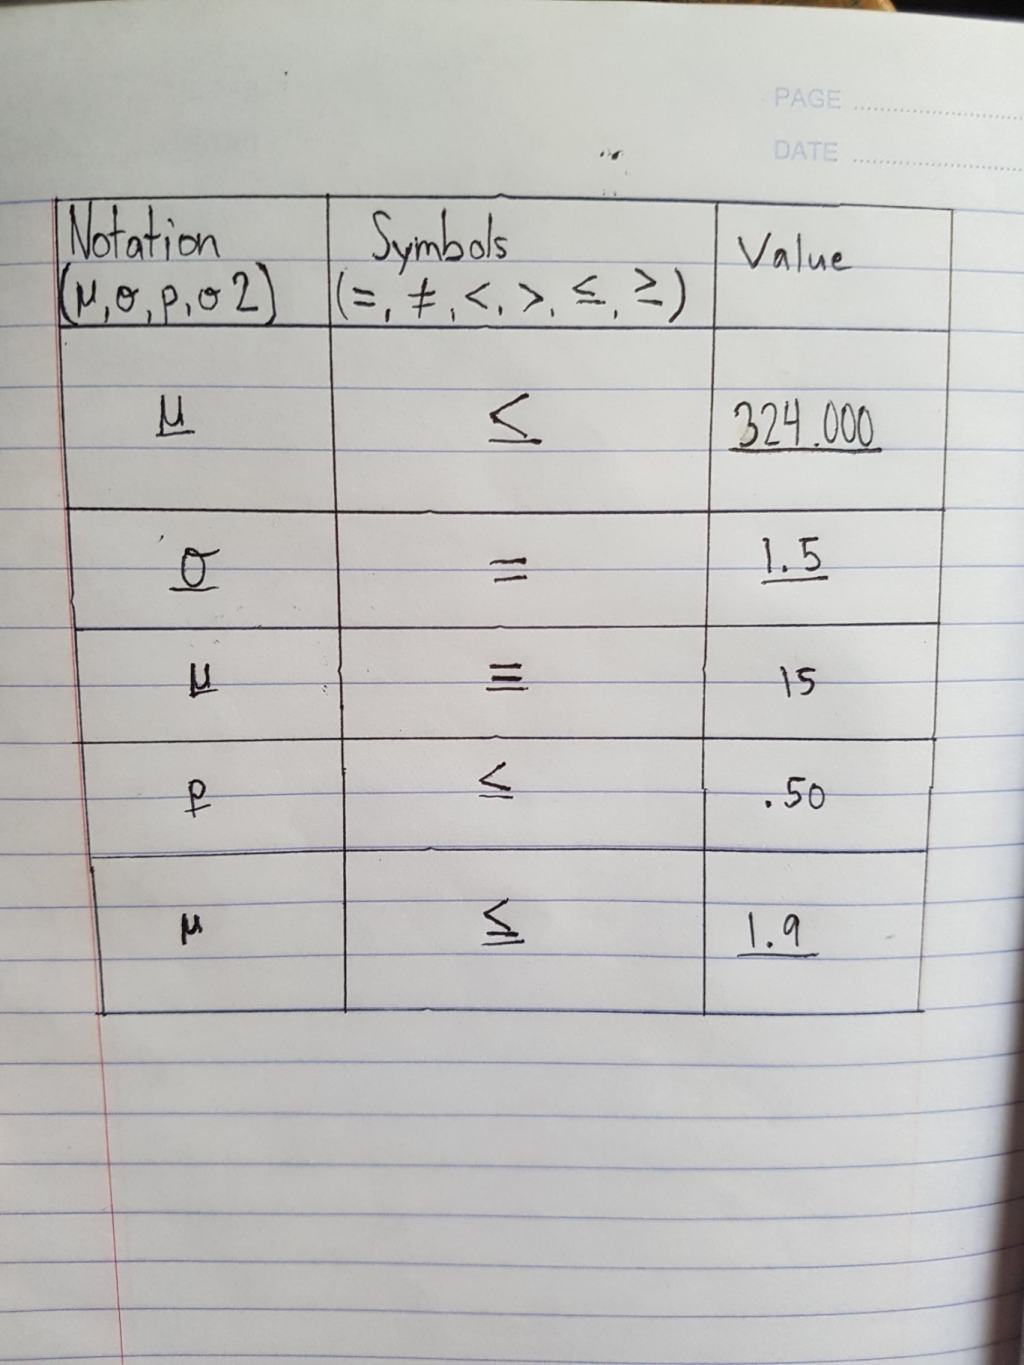 PAGE
DATE
Notation Symbols Value
(μ, σ, p, σ 2) (=, ≠, <, >, ≤, ≥)
μ ≤ 324.000
σ = 1.5
μ = 15
p ≤ .50
μ ≤ 1.9